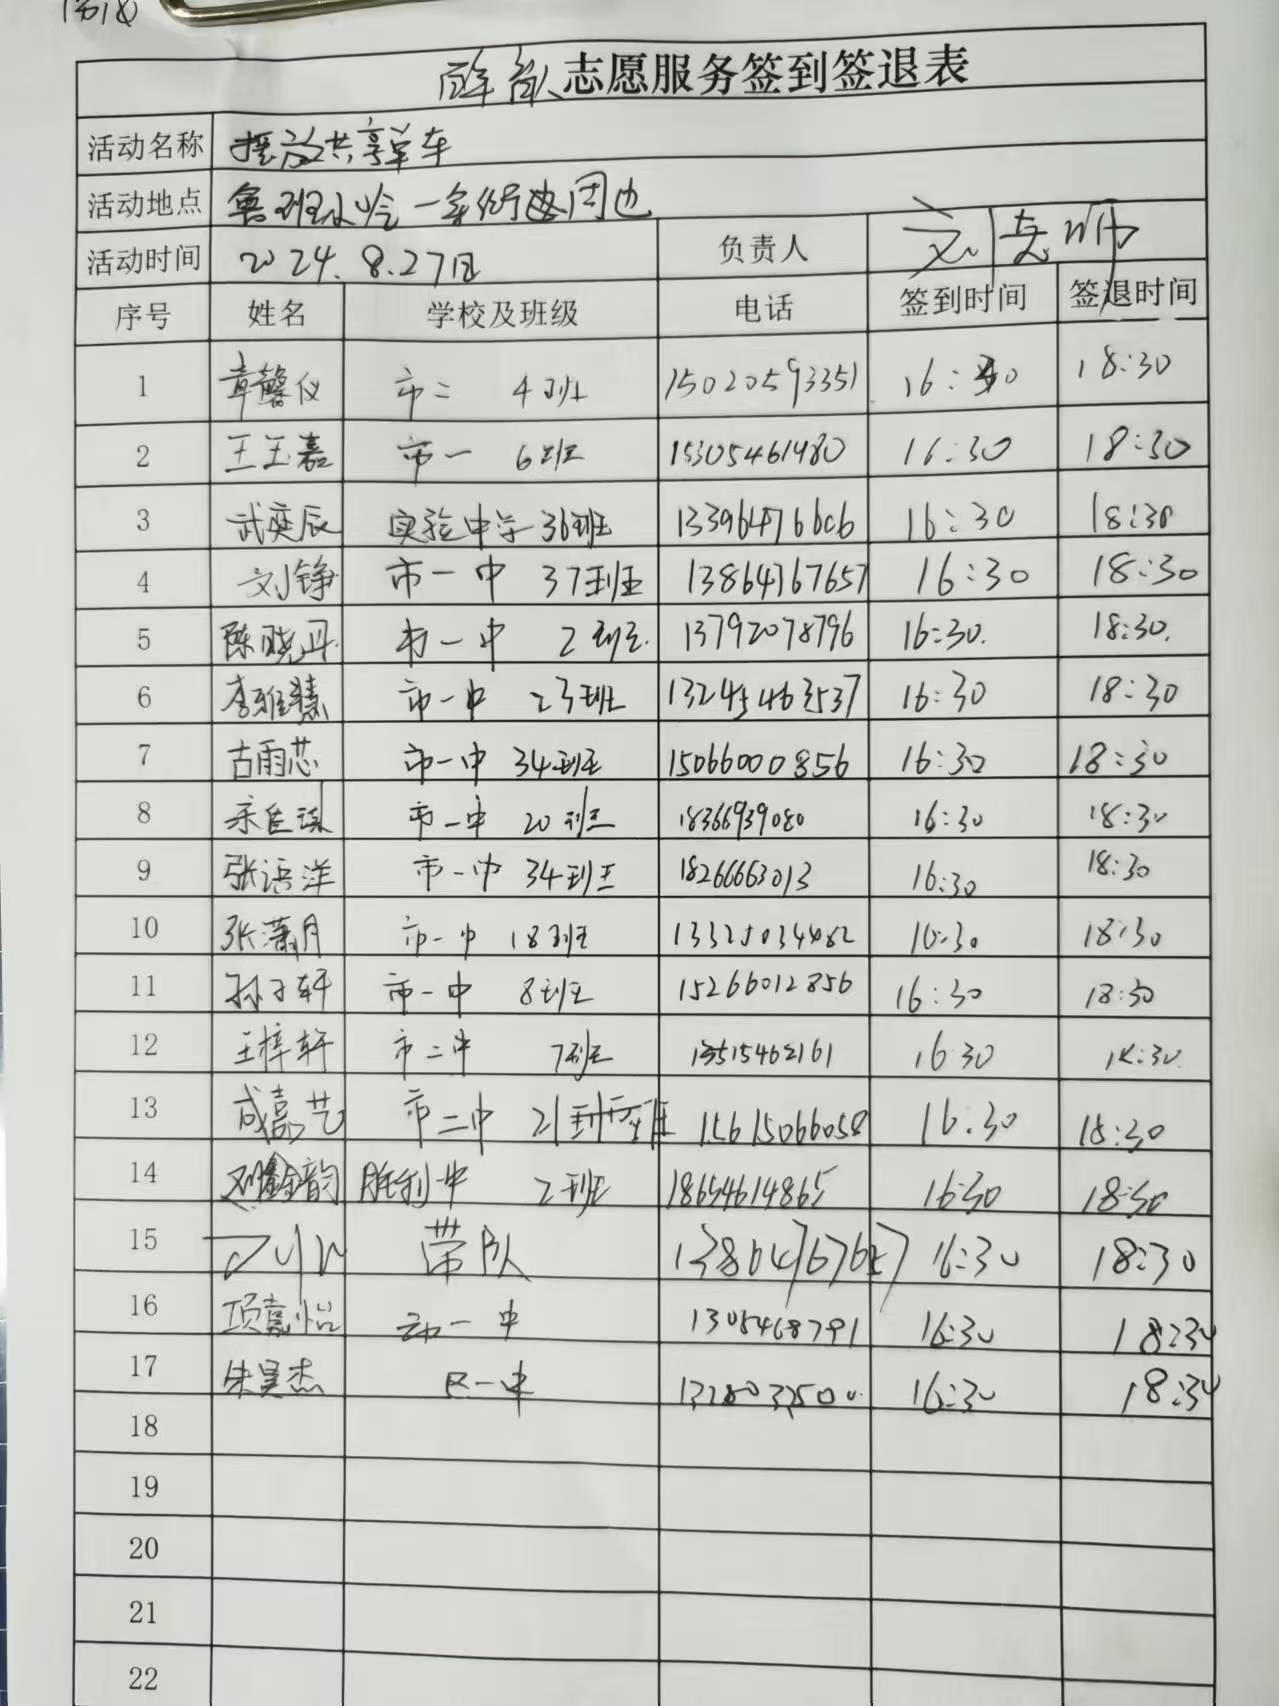 志愿服务签到签退表
活动名称 摆放共享单车
活动地点 鲁班公馆一条街周边
活动时间 2024.8.27日 负责人 刘老师
序号 姓名 学校及班级 电话 签到时间 签退时间
1 章馨仪 市二 4班 15020593351 16:30 18:30
2 王玉嘉 市一 6班 15305461480 16:30 18:30
3 武奕辰 实验中学 36班 13396476606 16:30 18:30
4 刘铮 市一中 37班 13864767657 16:30 18:30
5 陈晓丹 市一中 2班 13792078796 16:30 18:30
6 李雅慧 市一中 23班 13245463537 16:30 18:30
7 古雨芯 市一中 34班 15066000856 16:30 18:30
8 宋佳琪 市一中 20班 18366939080 16:30 18:30
9 张语洋 市一中 34班 18266663013 16:30 18:30
10 张潇月 市一中 18班 16:30 18:30
11 孙子轩 市一中 8班 15266012856 16:30 18:30
12 王梓轩 市二中 7班 16:30 18:30
13 成嘉艺 市二中 21班 15615066058 16:30 18:30
14 胜利一中 2班 18654614865 16:30 18:30
15 带队 13864767657 16:30 18:30
16 项嘉怡 一中 16:30 18:30
17 朱昊杰 区一中 16:30 18:30
18
19
20
21
22